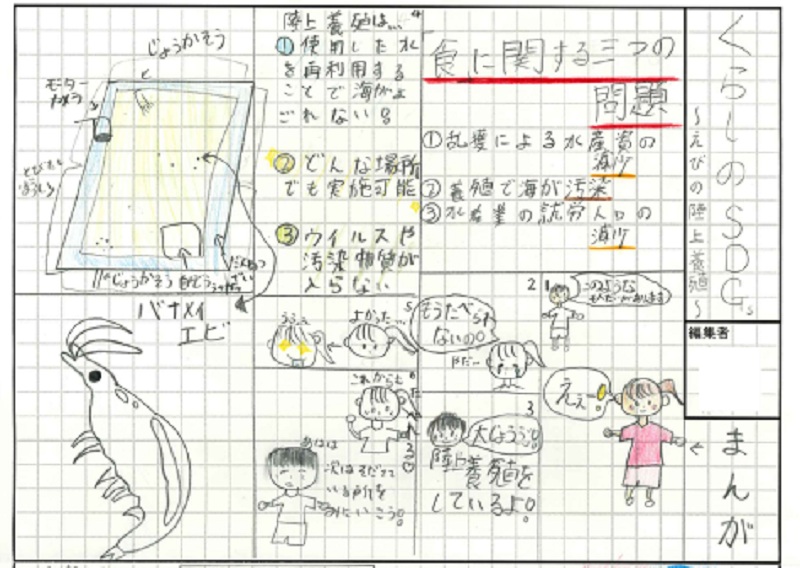 くらしのSDGs
～えびの陸上養殖～
編集者
まんが
食に関する三つの
問題
①乱獲による水産資の
減少
②養殖で海が汚染
③水産業の就労人口の
減少
1
このような
2
ええ!
3
大じょうぶ!
陸上養殖を
しているよ!
もうたべ
られ
ないの!
やだ…
4
陸上養殖は…
①使用した水
を再利用する
ことで海がよ
ごれない!
②どんな場所
でも実施可能
③ウイルスや
汚染物質が
入らない
5
よかった…
うるうる
6
これからも
あはは
次はそだてて
いる所を
みにいこう!
じょうかそう
モーター
じょうかそう
バナメイ
エビ